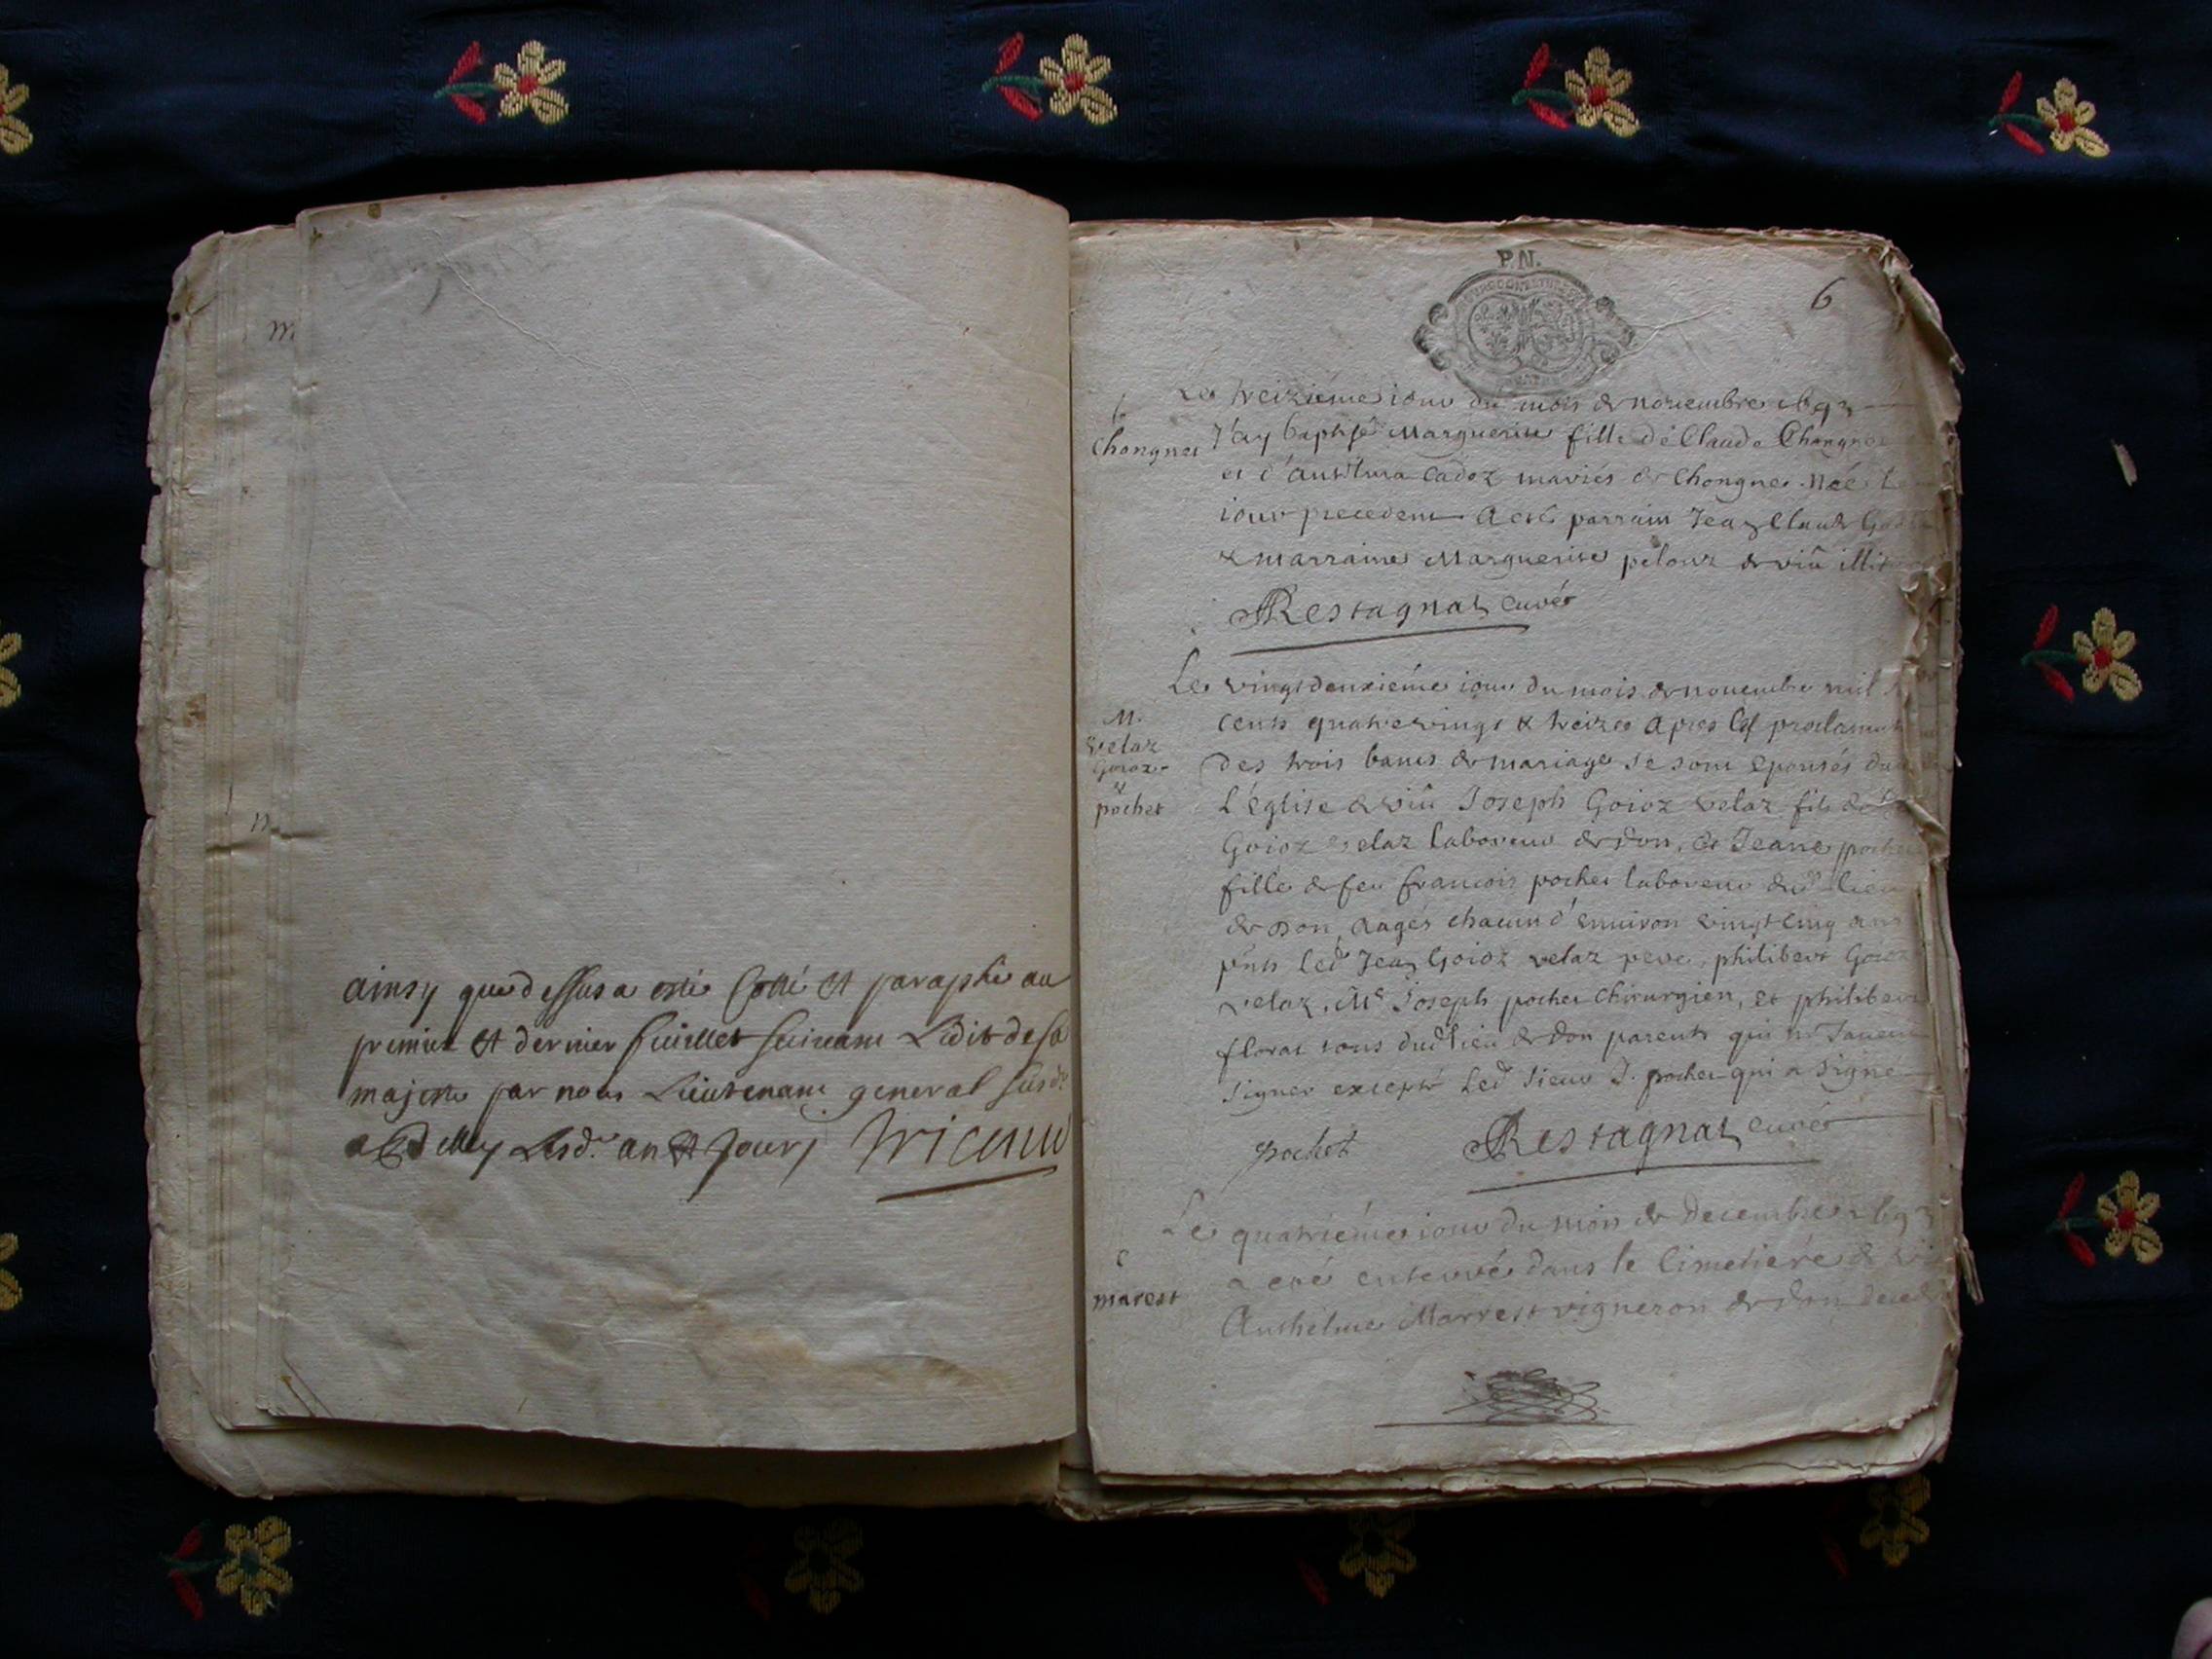 m
n
ainsy que dessus a esté Cotté et paraphé au
premier et dernier feuillet suivant Ledit de sa
majesté par nous Lieutenant general susd.
a Belley Lesd. an et jour
P.N.
6
Le treizieme iour du mois de novembre 1693
b
Chongnes
J'ay baptisé Marguerite fille de Claude Chongnes
et d'Anthelma Cadoz mariés de Chongnes Née le
iour precedent a esté parrain Jean Claude
& marraine Marguerite pelouz de viû
Restagnat curé
Le vingtdeuxiéme iour du mois de novembre mil
M.
velaz
Goioz
&
pochet
cents quatrevingt & treize apres les
des trois bancs de mariage se sont epousés
L'église de viû Joseph Goioz velaz fils de
Goioz velaz laboreur de don, et Jeane pochet
fille de feu francois pochet laboreur dud lieu
de don, aagés chacun d'environ vingt cinq ans
pnts led Jean Goioz velaz pere, philibert Goioz
velaz, Me Joseph pochet chirurgien, et philibert
florat tous dud lieu de don parents qui ne savent
signer excepté led sieur J. pochet qui a signé
pochet Restagnat curé
Le quatriéme iour du mois de decembre 1693
marest
a eté enterré dans le Cimetiére de
Anthelme Marrest vigneron de don